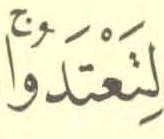 لِتَعْتَدُواْۚ